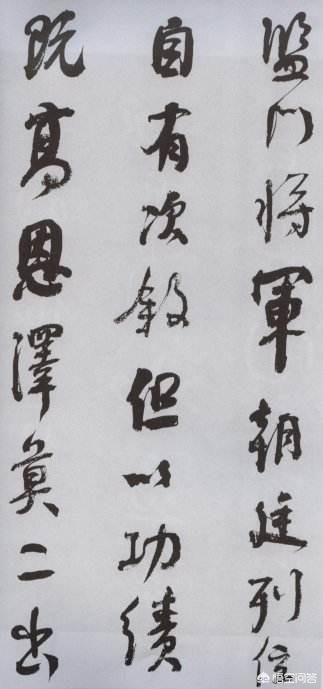 監門將軍朝廷列位
自有次叙但以功績
既高恩澤莫二出
悟空问答